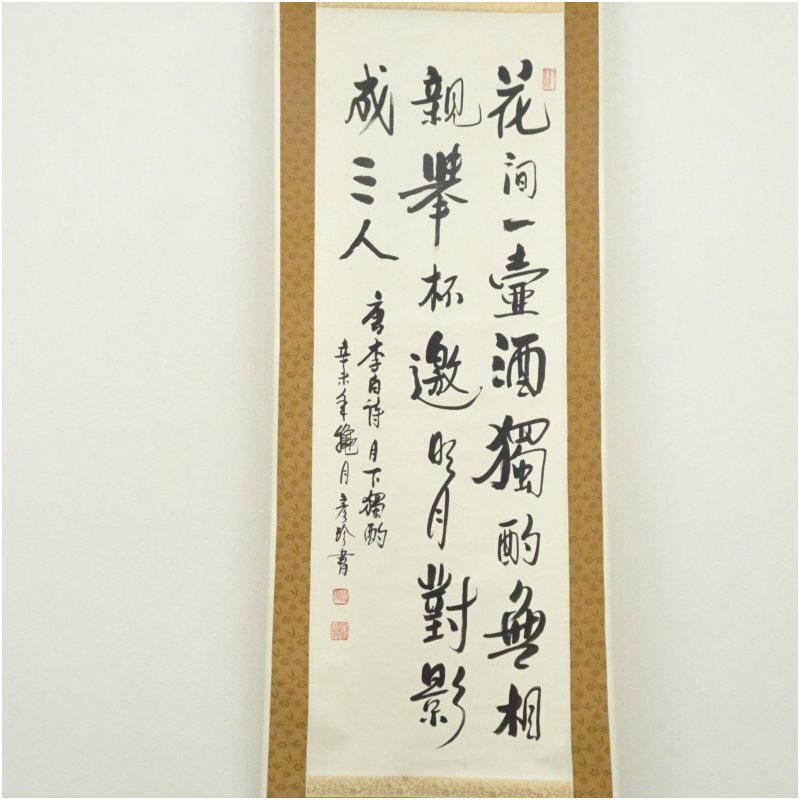 花間一壺酒獨酌無相
親舉杯邀明月對影
成三人
唐李白詩月下獨酌
辛未年 月 彦玲書